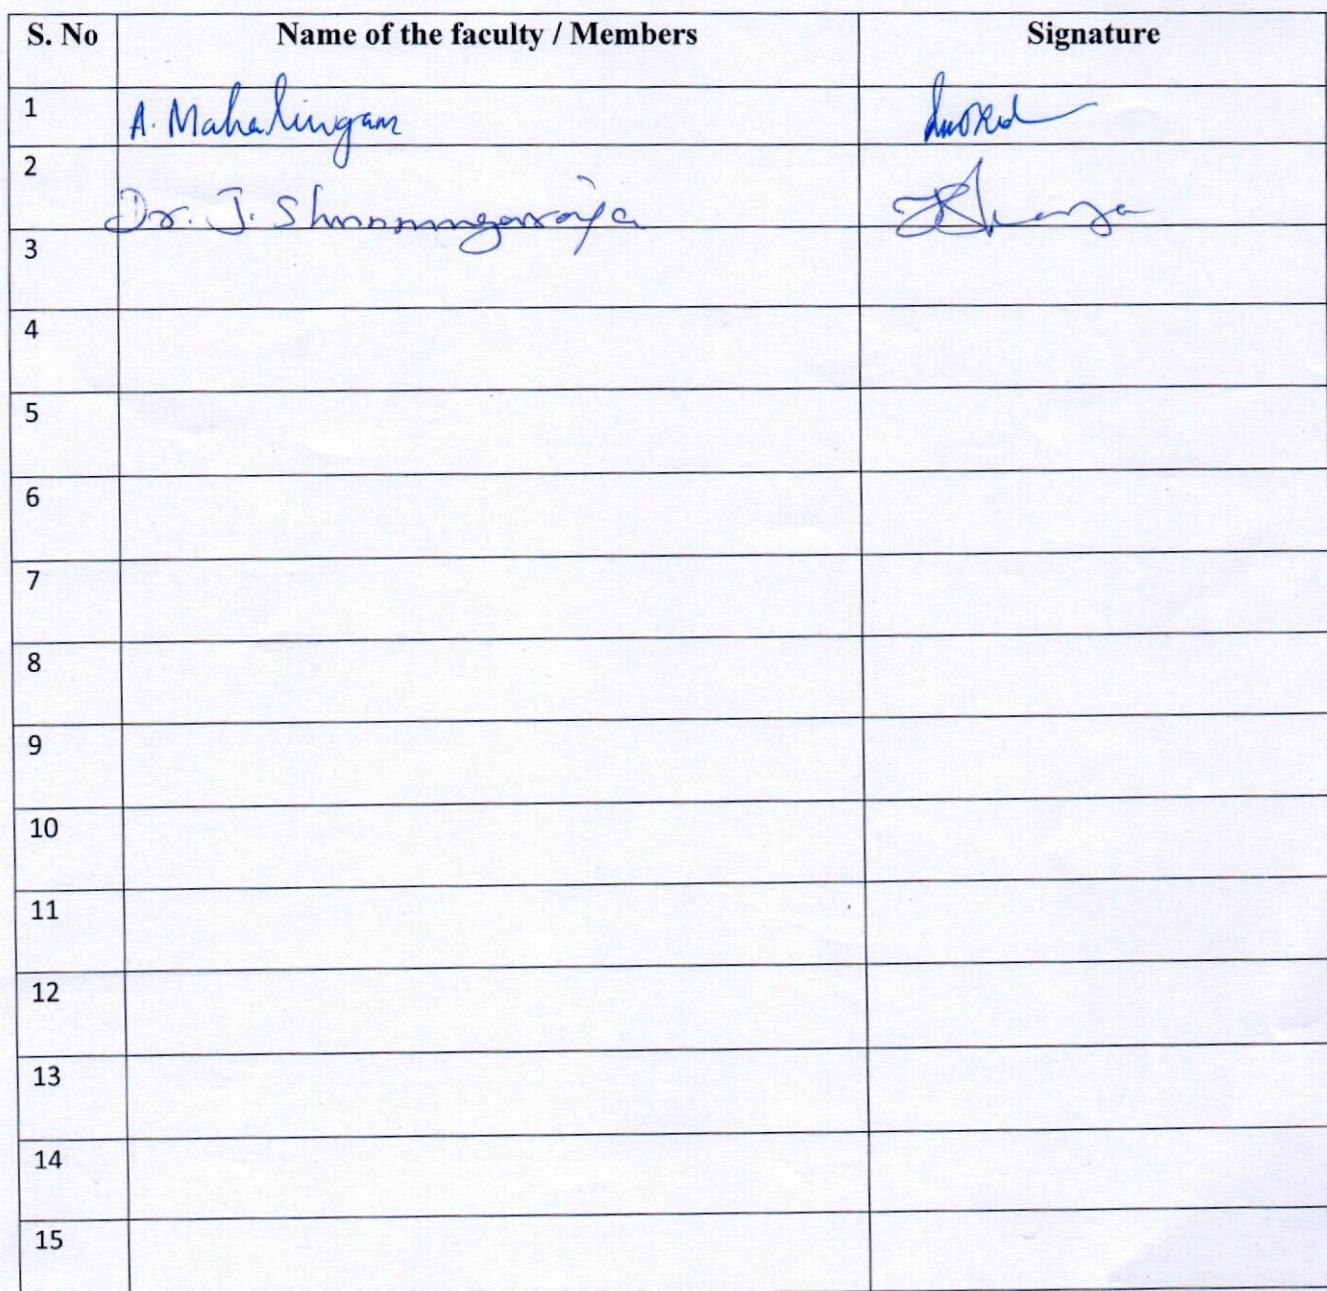 S. No Name of the faculty / Members Signature
1 A. Mahalingam
2 Dr. J.
3
4
5
6
7
8
9
10
11
12
13
14
15